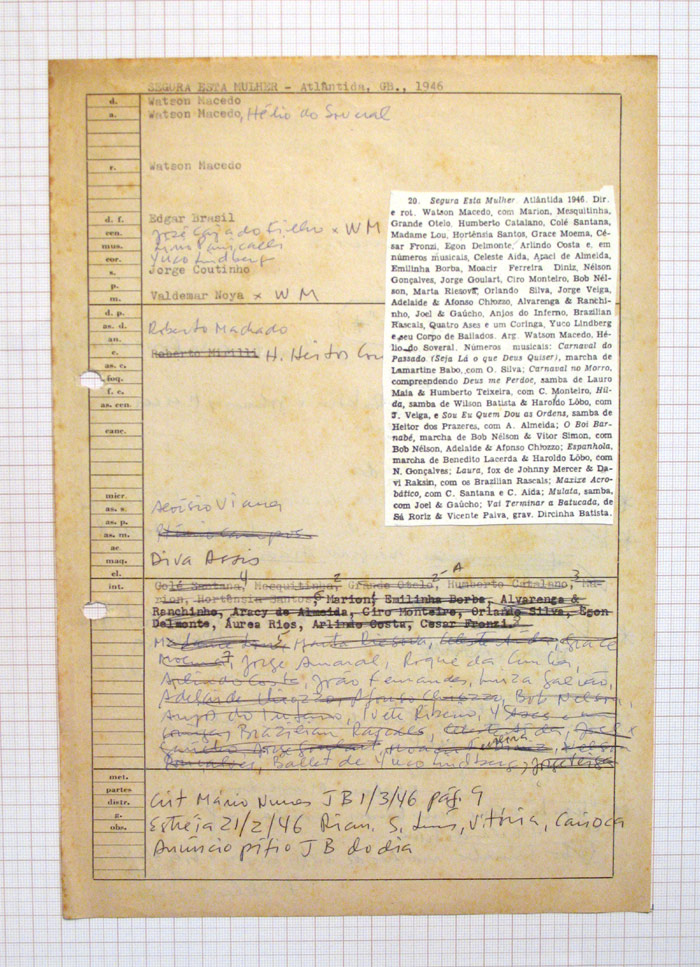 SEGURA ESTA MULHER - Atlântida, GB., 1946
d. Watson Macedo
a. Watson Macedo, Hélio do Soveral
r. Watson Macedo
d. f. Edgar Brasil
cen. José Cajado Filho x W M
mus. Lírio Panicalli
cor. Yuco Lindberg
s. Jorge Coutinho
p.
m. Valdemar Noya x W M
d. p.
as. d. Roberto Machado
an.
c. Roberto Mirilli H. Heitos
as. c.
foq.
f. c.
as. cen.
canç.
micr.
as. s. Aloísio Viana
as. p.
as. m.
ae.
maq. Diva Assis
el.
int. Colé Santana, 4 Mesquitinha, 2 Grande Otelo, 2 Humberto Catalano, 3 Ma-
rion, Hortênsia Santos, Marion, Emilinha Borba, Alvarenga &
Ranchinho, Aracy de Almeida, Ciro Monteiro, Orlando Silva, Egon
Delmonte, Áurea Rios, Arlindo Costa, Cesar Fronzi.
Madame Lou, 5 Marta Riesova, Celeste Aída, Grace
Moema, 7 Jorge Amaral, Roque da Cunha,
Arlindo Costa, João Fernandes, Luiza Galvão,
Adelaide Chiozzo, Afonso Chiozzo, Bob Nelson,
Anjos do Inferno, Ivete Ribeiro, 4 Ases e um
Coringa, Brazilian Rascals, Celeste Aída, Joel x
Gaúcho, Jorge Goulart, Nelson
Gonçalves, Ballet de Yuco Lindberg, Jorge Veiga
met.
partes
distr. Crit Mário Nunes JB 1/3/46 pág. 9
g.
obs. Estréia 21/2/46 Rian, S. Luís, Vitória, Carioca
Anúncio pífio JB do dia
20. Segura Esta Mulher. Atlântida 1946. Dir.
e rot. Watson Macedo, com Marion, Mesquitinha,
Grande Otelo, Humberto Catalano, Colé Santana,
Madame Lou, Hortênsia Santos, Grace Moema, Cé-
sar Fronzi, Egon Delmonte, Arlindo Costa e, em
números musicais, Celeste Aída, Apaci de Almeida,
Emilinha Borba, Moacir Ferreira Diniz, Nélson
Gonçalves, Jorge Goulart, Ciro Monteiro, Bob Nél-
son, Marta Riesova, Orlando Silva, Jorge Veiga,
Adelaide & Afonso Chiozzo, Alvarenga & Ranchi-
nho, Joel & Gaúcho, Anjos do Inferno, Brazilian
Rascais, Quatro Ases e um Coringa, Yuco Lindberg
e seu Corpo de Bailados. Arg. Watson Macedo, Hé-
lio do Soveral. Números musicais: Carnaval do
Passado (Seja Lá o que Deus Quiser), marcha de
Lamartine Babo, com O. Silva; Carnaval no Morro,
compreendendo Deus me Perdoe, samba de Lauro
Maia & Humberto Teixeira, com C. Monteiro, Hil-
da, samba de Wilson Batista & Haroldo Lôbo, com
J. Veiga, e Sou Eu Quem Dou as Ordens, samba de
Heitor dos Prazeres, com A. Almeida; O Boi Bar-
nabé, marcha de Bob Nélson & Vítor Simon, com
Bob Nélson, Adelaide & Afonso Chiozzo; Espanhola,
marcha de Benedito Lacerda & Haroldo Lôbo, com
N. Gonçalves; Laura, fox de Johnny Mercer & Da-
vi Raksin, com os Brazilian Rascals; Maxixe Acro-
bático, com C. Santana e C. Aída; Mulata, samba,
com Joel & Gaúcho; Vai Terminar a Batucada, de
Sá Roriz & Vicente Paiva, grav. Dircinha Batista.